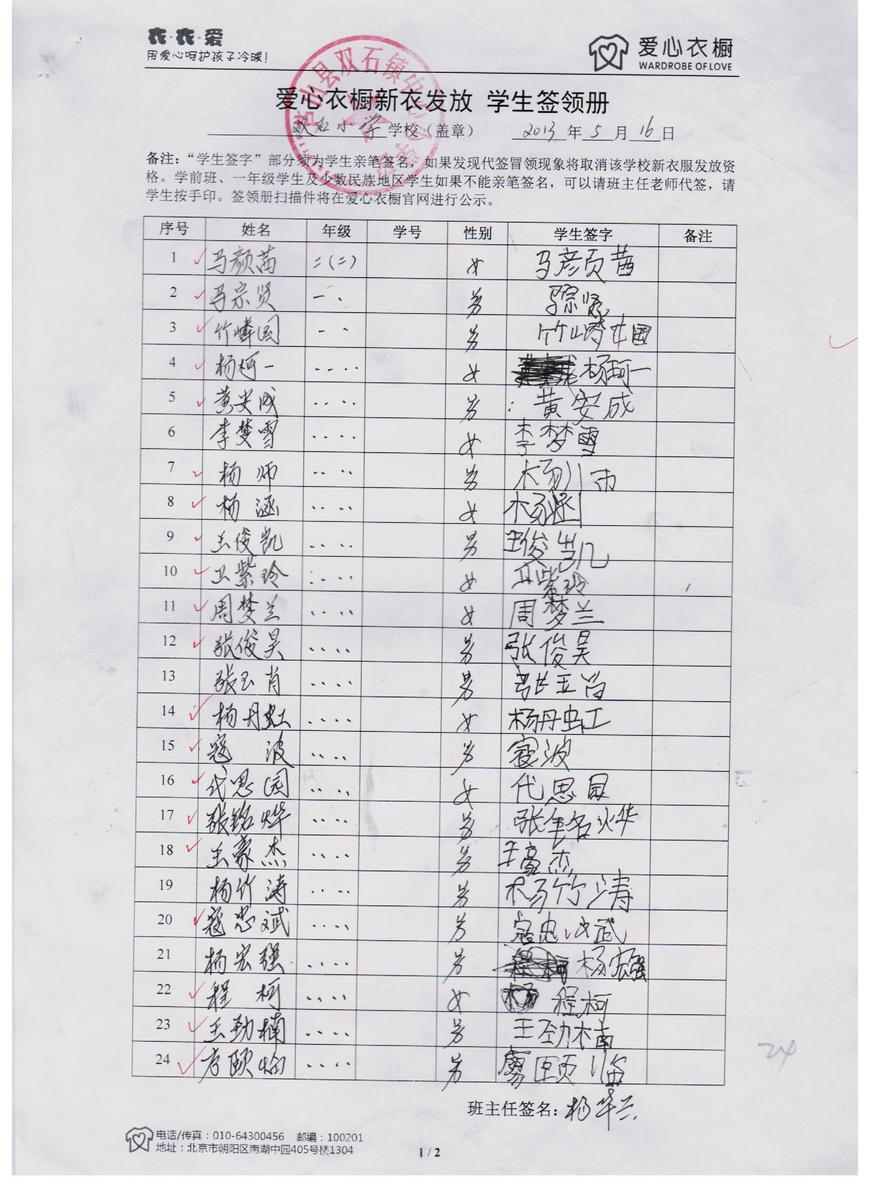 衣·衣·爱
用爱心呵护孩子冷暖!
爱心衣橱
WARDROBE OF LOVE
双石镇中心
爱心衣橱新衣发放 学生签领册
双石小学 学校（盖章） 2013 年 5 月 16 日
备注：“学生签字”部分须为学生亲笔签名，如果发现代签冒领现象将取消该学校新衣服发放资
格。学前班、一年级学生及少数民族地区学生如果不能亲笔签名，可以请班主任老师代签，请
学生按手印。签领册扫描件将在爱心衣橱官网进行公示。
序号 姓名 年级 学号 性别 学生签字 备注
1 马颜茜 二(二) 女 马颜茜
2 马宗贤 男 马宗贤
3 竹 男 竹
4 杨柯一 女 杨柯一
5 黄安成 男 黄安成
6 李梦雪 女 李梦雪
7 杨师 男 杨师
8 杨涵 女 杨涵
9 王俊凯 男 王俊凯
10 卫紫玲 女 卫紫玲
11 周梦兰 女 周梦兰
12 张俊昊 男 张俊昊
13 张玉肖 男 张玉肖
14 杨丹虹 女 杨丹虹
15 寇波 男 寇波
16 代思园 女 代思
17 张铭烨 男 张铭烨
18 王豪杰 男 王豪杰
19 杨竹涛 男 杨竹涛
20 寇忠斌 男 寇忠
21 杨宏强 男 杨宏强
22 程柯 女 程柯
23 王劲楠 男 王劲楠
24 男
24
班主任签名：杨
电话/传真：010-64300456 邮编：100201
地址：北京市朝阳区南湖中园405号楼1304
1 / 2